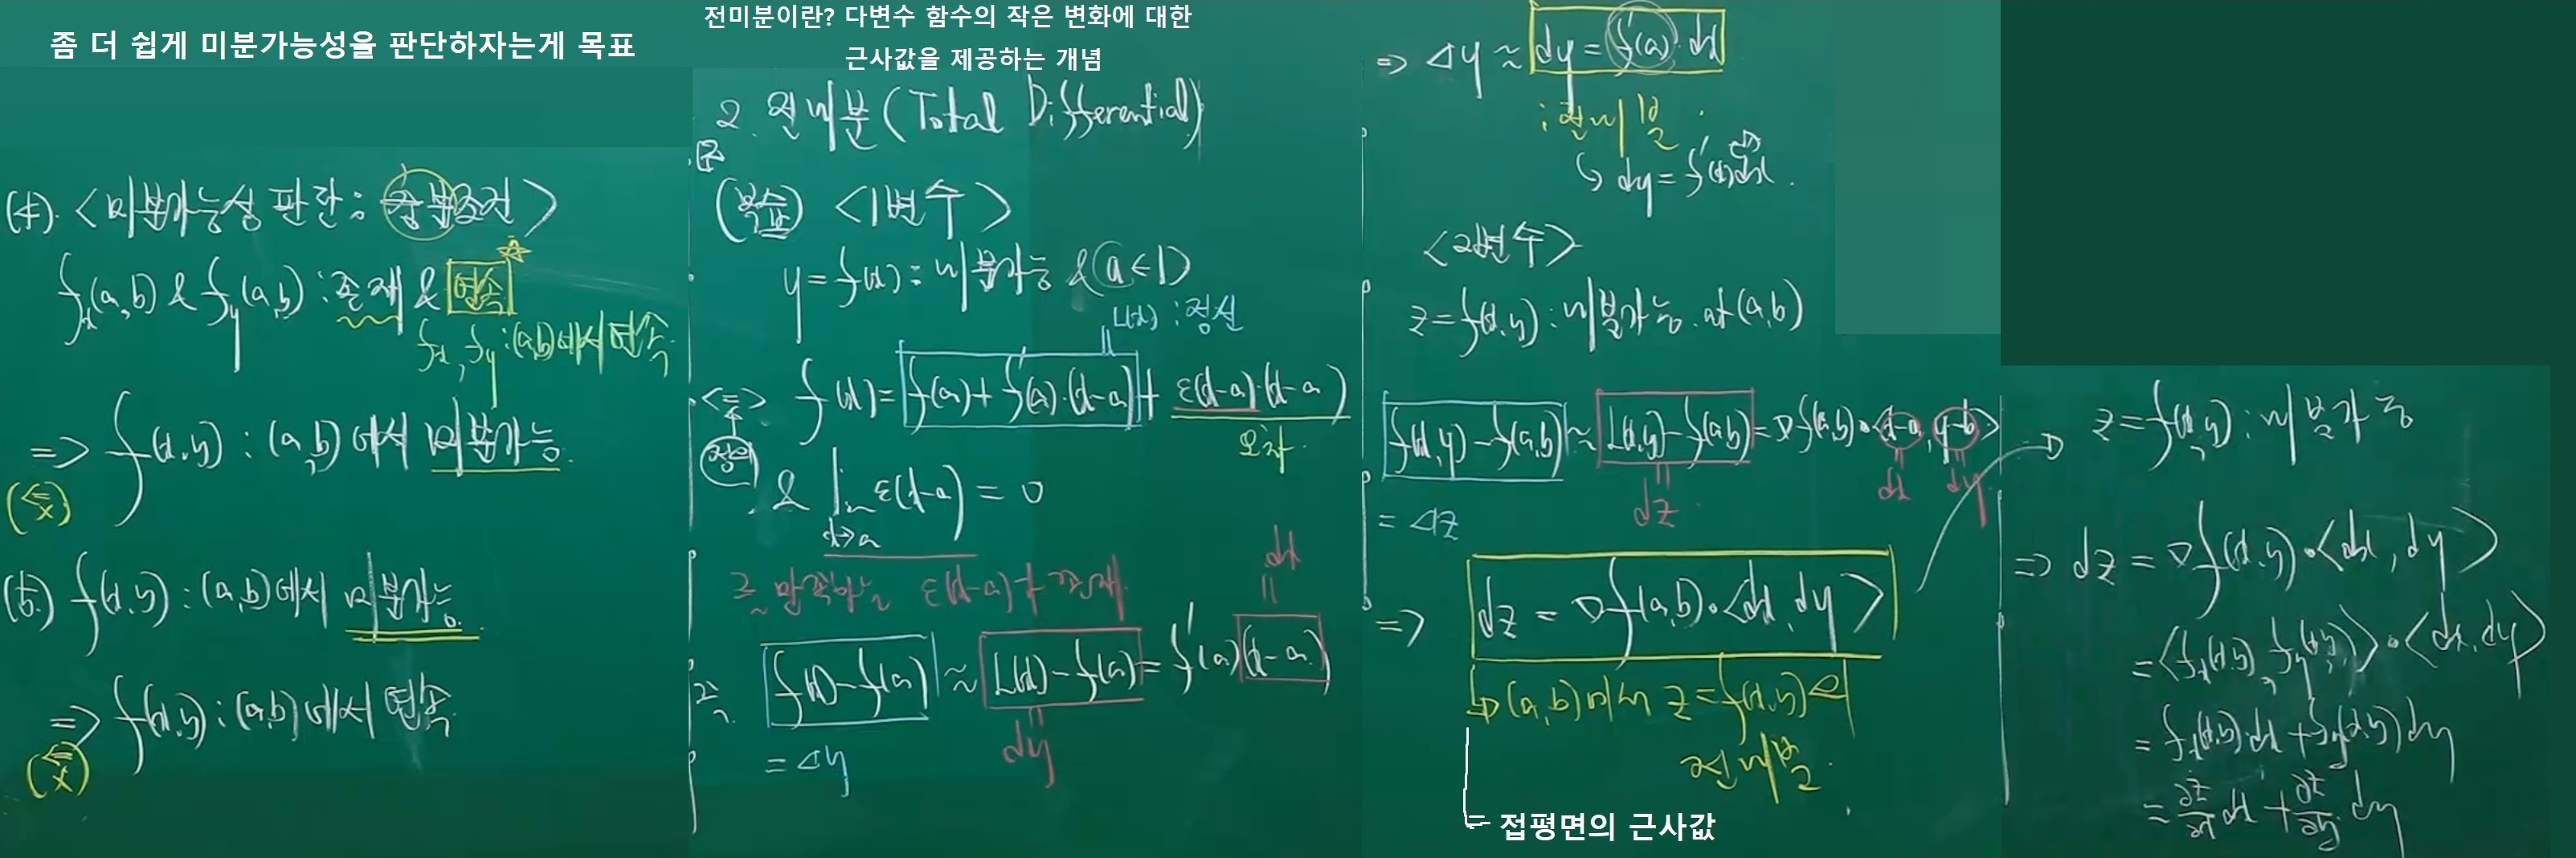 좀 더 쉽게 미분가능성을 판단하자는게 목표
<미분가능성 판단 : 충분조건>
fx(a,b) & fy(a,b) : 존재 & 연속
fx, fy : (a,b)에서 연속
=> f(x,y) : (a,b)에서 미분가능.
f(x,y) : (a,b)에서 미분가능.
=> f(x,y) : (a,b)에서 연속
전미분이란? 다변수 함수의 작은 변화에 대한
근사값을 제공하는 개념
2. 전미분 (Total Differential)
(복습) <1변수>
y = f(x) : 미분가능 & (a∈I)
L(x) : 접선
<=> f(x) = f(a) + f'(a)·(x-a) + ε(x-a)·(x-a)
정의
오차
& lim ε(x-a) = 0
x→a
를 만족하는 ε(x-a)가 존재
dx
=
즉, f(x) - f(a) ≈ L(x) - f(a) = f'(a)(x-a)
= Δy
dy
=> Δy ≈ dy = f'(a)·dx
: 전미분.
↳ dy = f'(x)dx.
<2변수>
z = f(x,y) : 미분가능. at (a,b)
f(x,y) - f(a,b) ≈ L(x,y) - f(a,b) = ∇f(a,b)•<x-a, y-b>
= Δz
dz
dx
dy
=> dz = ∇f(a,b)•<dx, dy>
↳ (a,b)에서 z = f(x,y)의
전미분.
= 접평면의 근사값
z = f(x,y) : 미분가능
=> dz = ∇f(x,y)•<dx, dy>
= <fx(x,y), fy(x,y)>•<dx, dy>
= fx(x,y)dx + fy(x,y)dy
= ∂z/∂x dx + ∂z/∂y dy